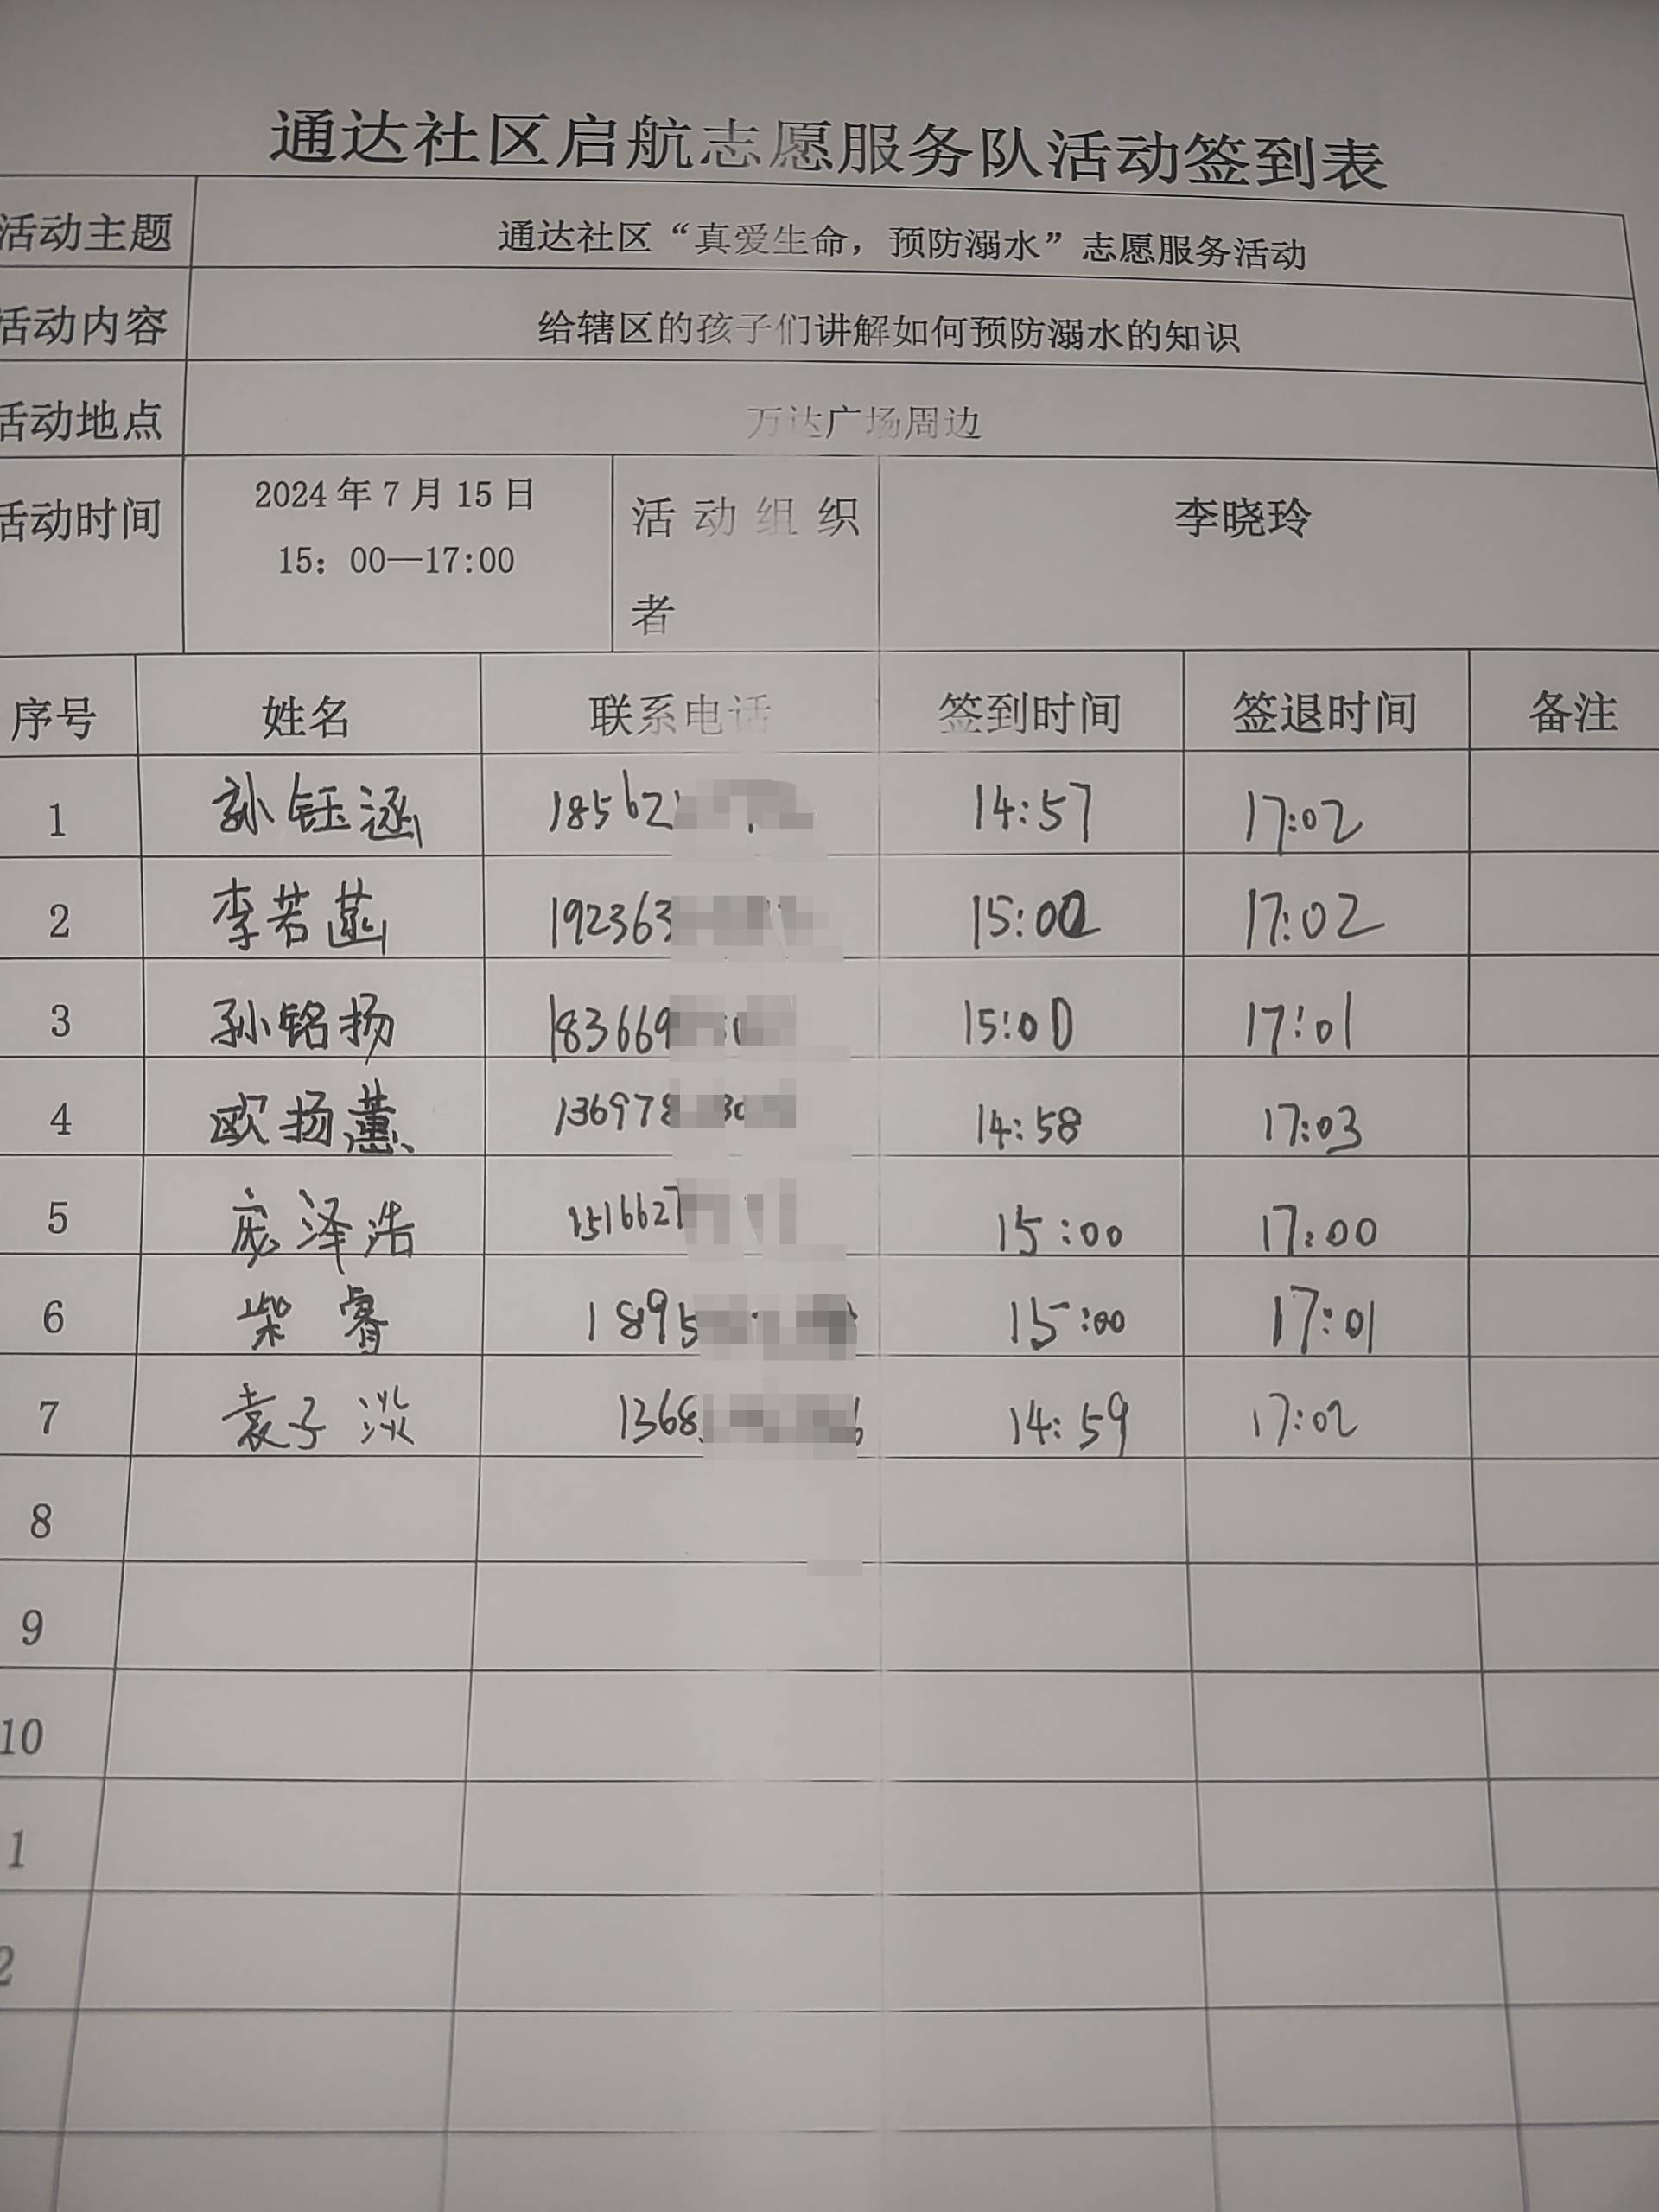 通达社区启航志愿服务队活动签到表
活动主题 通达社区“真爱生命，预防溺水”志愿服务活动
活动内容 给辖区的孩子们讲解如何预防溺水的知识
活动地点 万达广场周边
活动时间 2024年7月15日 15：00—17:00 活动组织者 李晓玲
序号 姓名 联系电话 签到时间 签退时间 备注
1 孙钰涵 18562 14:57 17:02
2 李若菡 192363 15:00 17:02
3 孙铭扬 183669 15:00 17:01
4 欧扬蕙 136978 14:58 17:03
5 庞泽浩 1516627 15:00 17:00
6 柴睿 1895 15:00 17:01
7 袁子淡 1368 14:59 17:02
8
9
10
1
2